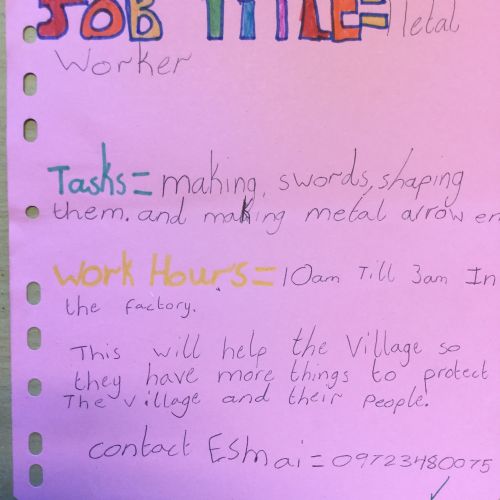 JOB TITLE= Metal
Worker
Tasks= making, swords, shaping
them. and making metal arrow en
Work Hours= 10am Till 3am In
the factory.
This will help the Village so
they have more things to protect
The village and their People.
contact Esmai= 09723480075